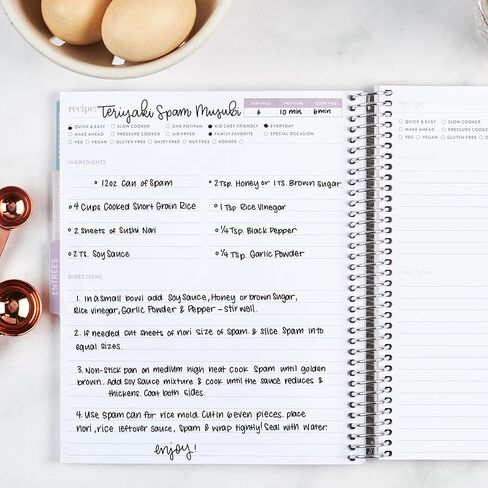 recipe: Teriyaki Spam Musubi
SERVINGS PREP TIME COOK TIME
6 10 min 6min
QUICK & EASY SLOW COOKER ONE POT/PAN KID CHEF FRIENDLY EVERYDAY
MAKE AHEAD PRESSURE COOKER AIR FRYER FAMILY FAVORITE SPECIAL OCCASION
VEG VEGAN GLUTEN FREE DAIRY FREE NUT FREE KOSHER
INGREDIENTS
12oz can of Spam
2Tsp. Honey or 1TS. Brown Sugar
4 Cups Cooked Short Grain Rice
1 Tsp Rice Vinegar
2 Sheets of Sushi Nori
1/4 Tsp. Black Pepper
2 TS. Soy Sauce
1/4 Tsp. Garlic Powder
ENTRÉES
DIRECTIONS
1. In a Small bowl add Soy Sauce, Honey or brown Sugar,
Rice vinegar, Garlic Powder & Pepper - stir well.
2. If needed cut sheets of nori size of spam & slice Spam into
equal sizes.
3. Non-stick pan on medium high heat cook Spam until golden
brown. Add Soy Sauce mixture & cook until the sauce reduces &
thickens. Coat both sides.
4. Use Spam can for rice mold. Cut in 6 even pieces. place
nori, rice leftover sauce, Spam & wrap tightly! Seal with water.
enjoy!
recipe:
QUICK & EASY SLOW COOKER
MAKE AHEAD PRESSURE COOKER
VEG VEGAN GLUTEN FREE
INGREDIENTS
DIRECTIONS